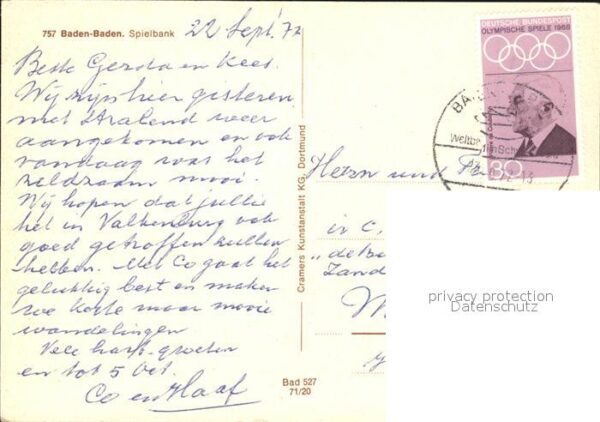 757 Baden-Baden. Spielbank
22 Sept. 72
Beste Gerda en Kees.
Wij zijn hier gisteren
met stralend weer
aangekomen en ook
vandaag was het
zeldzaam mooi.
Wij hopen dat jullie
het in Valkenburg ook
goed getroffen zullen
hebben. Met Co gaat het
gelukkig best en maken
we korte maar mooie
wandelingen
Vele hart. groeten
en tot 5 Oct.
Co en
Cramers Kunstanstalt KG, Dortmund
Bad 527
71/20
DEUTSCHE BUNDESPOST
OLYMPISCHE SPIELE 1968
30
Herrn und
"de
Zand
privacy protection
Datenschutz